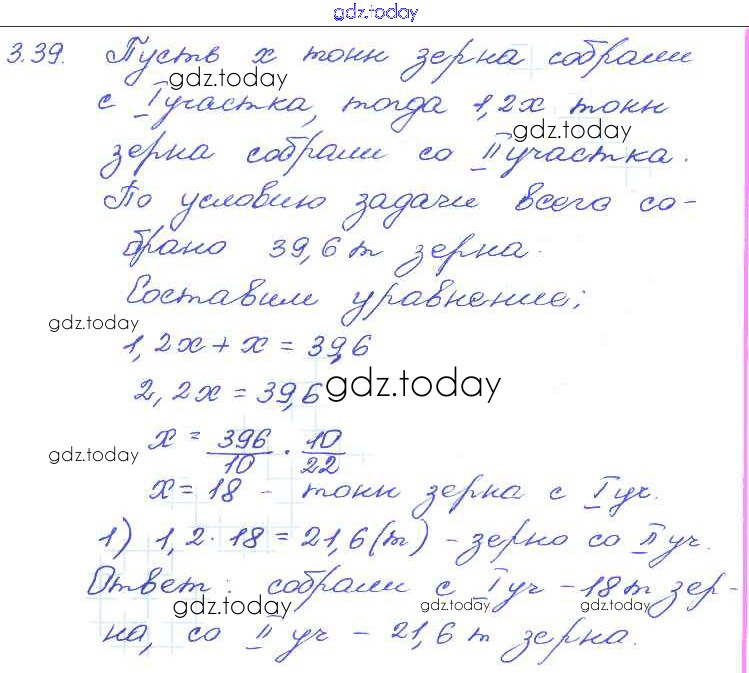 gdz.today
3.39. Пусть x тонн зерна собрали
gdz.today
с I участка, тогда 1,2x тонн
gdz.today
зерна собрали со II участка.
По условию задачи всего со-
брано 39,6 т зерна.
Составим уравнение:
gdz.today
1,2x + x = 39,6
2,2x = 39,6
gdz.today
x = 396/10 · 10/22
gdz.today
x = 18 - тонн зерна с I уч.
1) 1,2 · 18 = 21,6 (т) - зерно со II уч.
Ответ: собрали с I уч - 18 т зер-
gdz.today gdz.today gdz.today
на, со II уч - 21,6 т зерна.